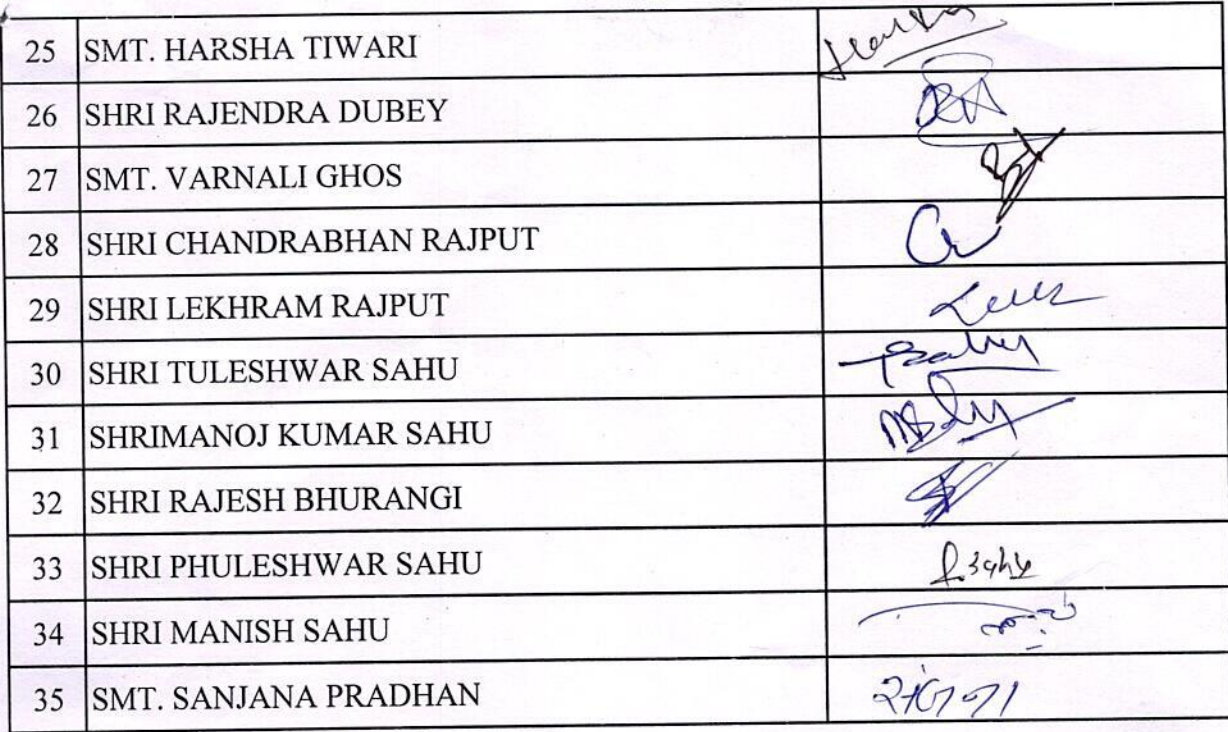 25 SMT. HARSHA TIWARI
26 SHRI RAJENDRA DUBEY
27 SMT. VARNALI GHOS
28 SHRI CHANDRABHAN RAJPUT
29 SHRI LEKHRAM RAJPUT
30 SHRI TULESHWAR SAHU
31 SHRIMANOJ KUMAR SAHU
32 SHRI RAJESH BHURANGI
33 SHRI PHULESHWAR SAHU P.Sahu
34 SHRI MANISH SAHU
35 SMT. SANJANA PRADHAN संजना